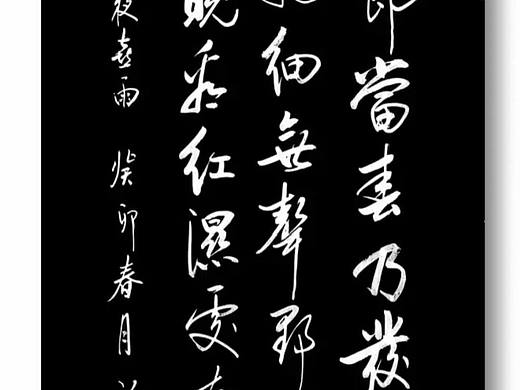 當春乃發
細無聲野
看紅濕處
夜喜雨 癸卯春月